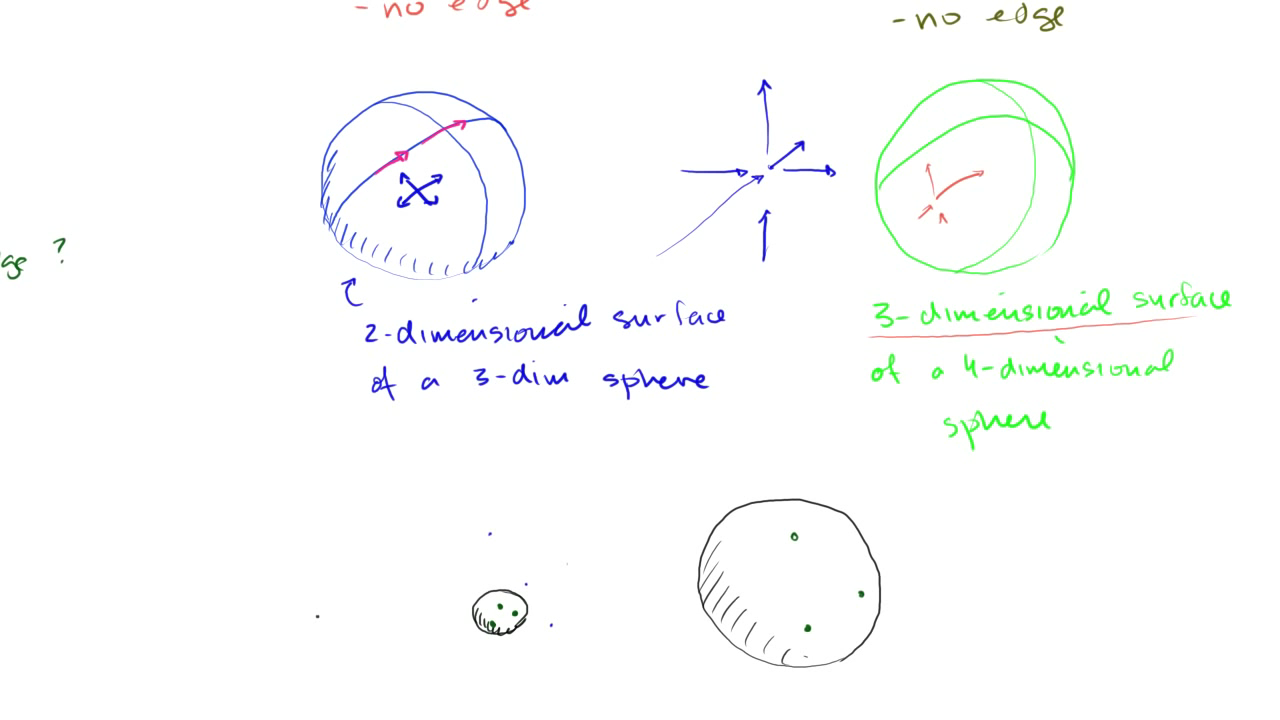 - no edge
- no edge
ge ?
2-dimensional surface
of a 3-dim sphere
3-dimensional surface
of a 4-dimensional
sphere